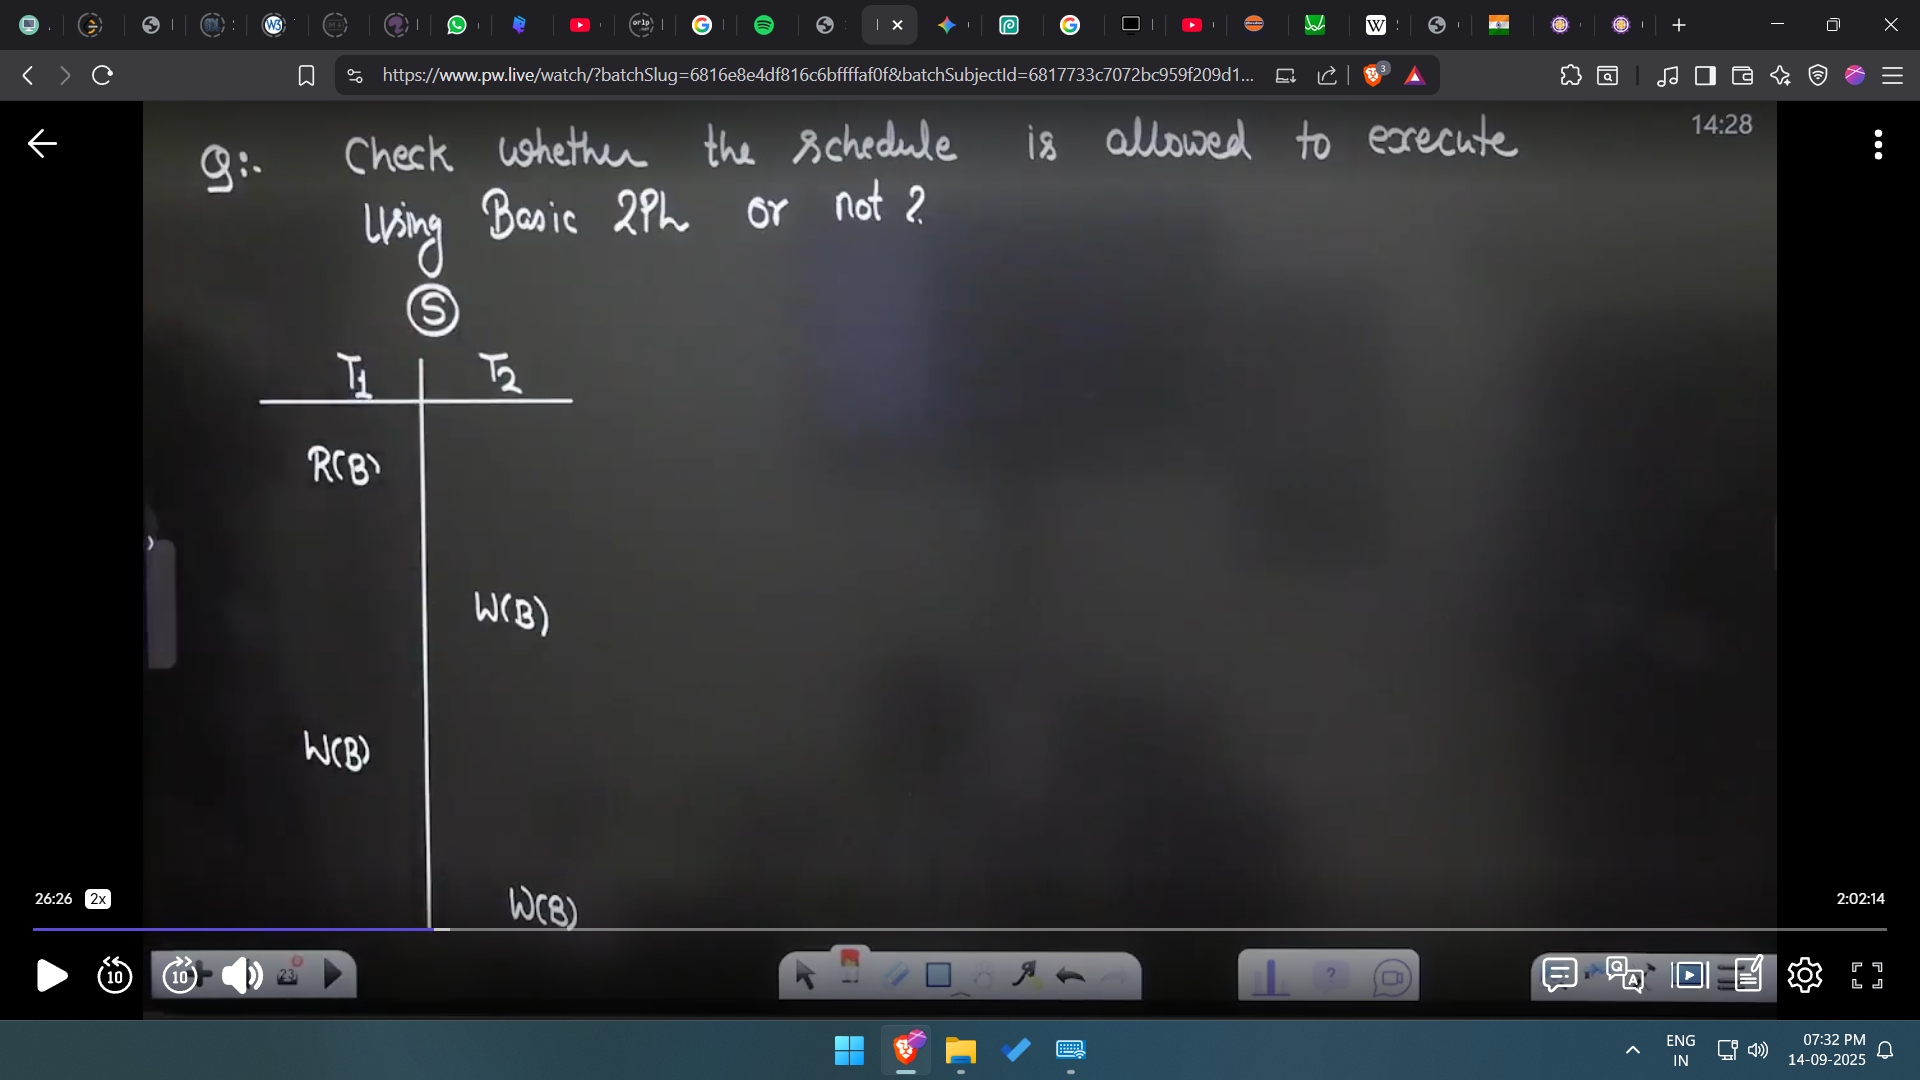 https://www.pw.live/watch/?batchSlug=6816e8e4df816c6bffffaf0f&batchSubjectId=6817733c7072bc959f209d1...
3
14:28
Q:. Check whether the schedule is allowed to execute
Using Basic 2PL or not ?
S
T1 T2
R(B)
W(B)
W(B)
W(B)
26:26 2x
2:02:14
10 10
23
?
Q A
ENG
IN
07:32 PM
14-09-2025